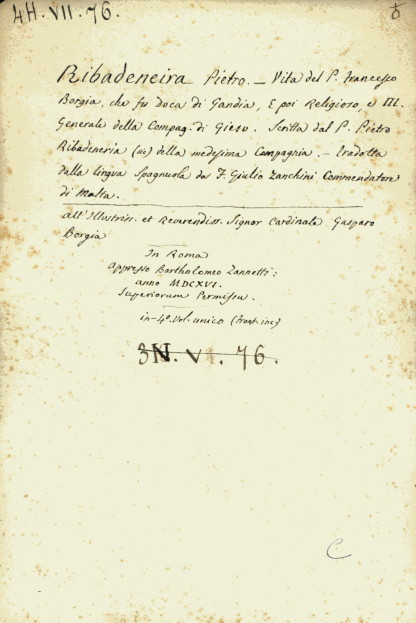 4H.VII.76.
Ribadeneira Pietro. — Vita del P. Francesco
Borgia, che fu Doca di Gandia, E poi Religioso, e III.
Generale della Compag. di Giesu. Scritta dal P. Pietro
Ribadeneria (sic) della medesima Compagnia. — Tradotta
dalla lingua Spagnuola da F. Giulio Zanchini Commendatore
di Malta.
All'Illustriss. et Reverendiss. Signor Cardinale Gasparo
Borgia
In Roma
Appresso Bartholomeo Zannetti:
anno MDCXVI.
Superiorum Permissu.
in-4º. Vol. unico (front. inc)
3N. V 76.
C